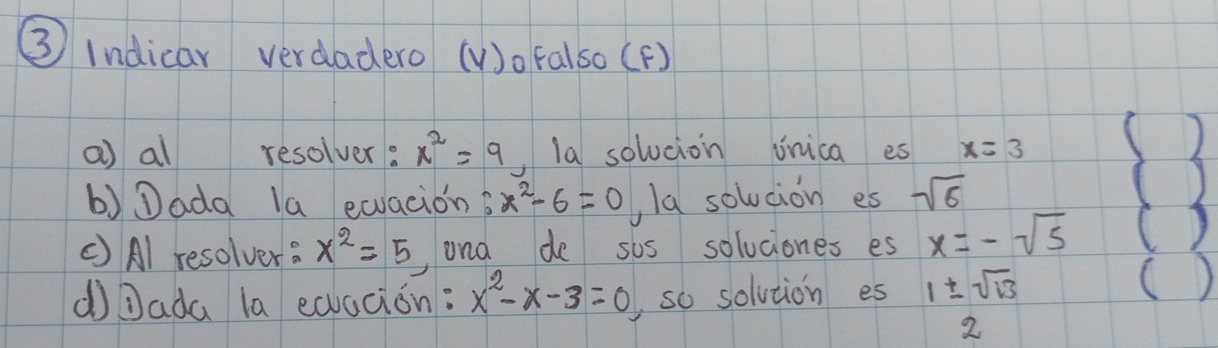 ③ Indicar verdadero (V) o falso (F)
a) al resolver: x² = 9, la solución única es x = 3 { }
b) Dada la ecuación: x² - 6 = 0, la solución es √6 { }
c) Al resolver: x² = 5, una de sus soluciones es x = - √5 ( )
d) Dada la ecuación: x² - x - 3 = 0, su solución es (1 ± √13)/2 ( )